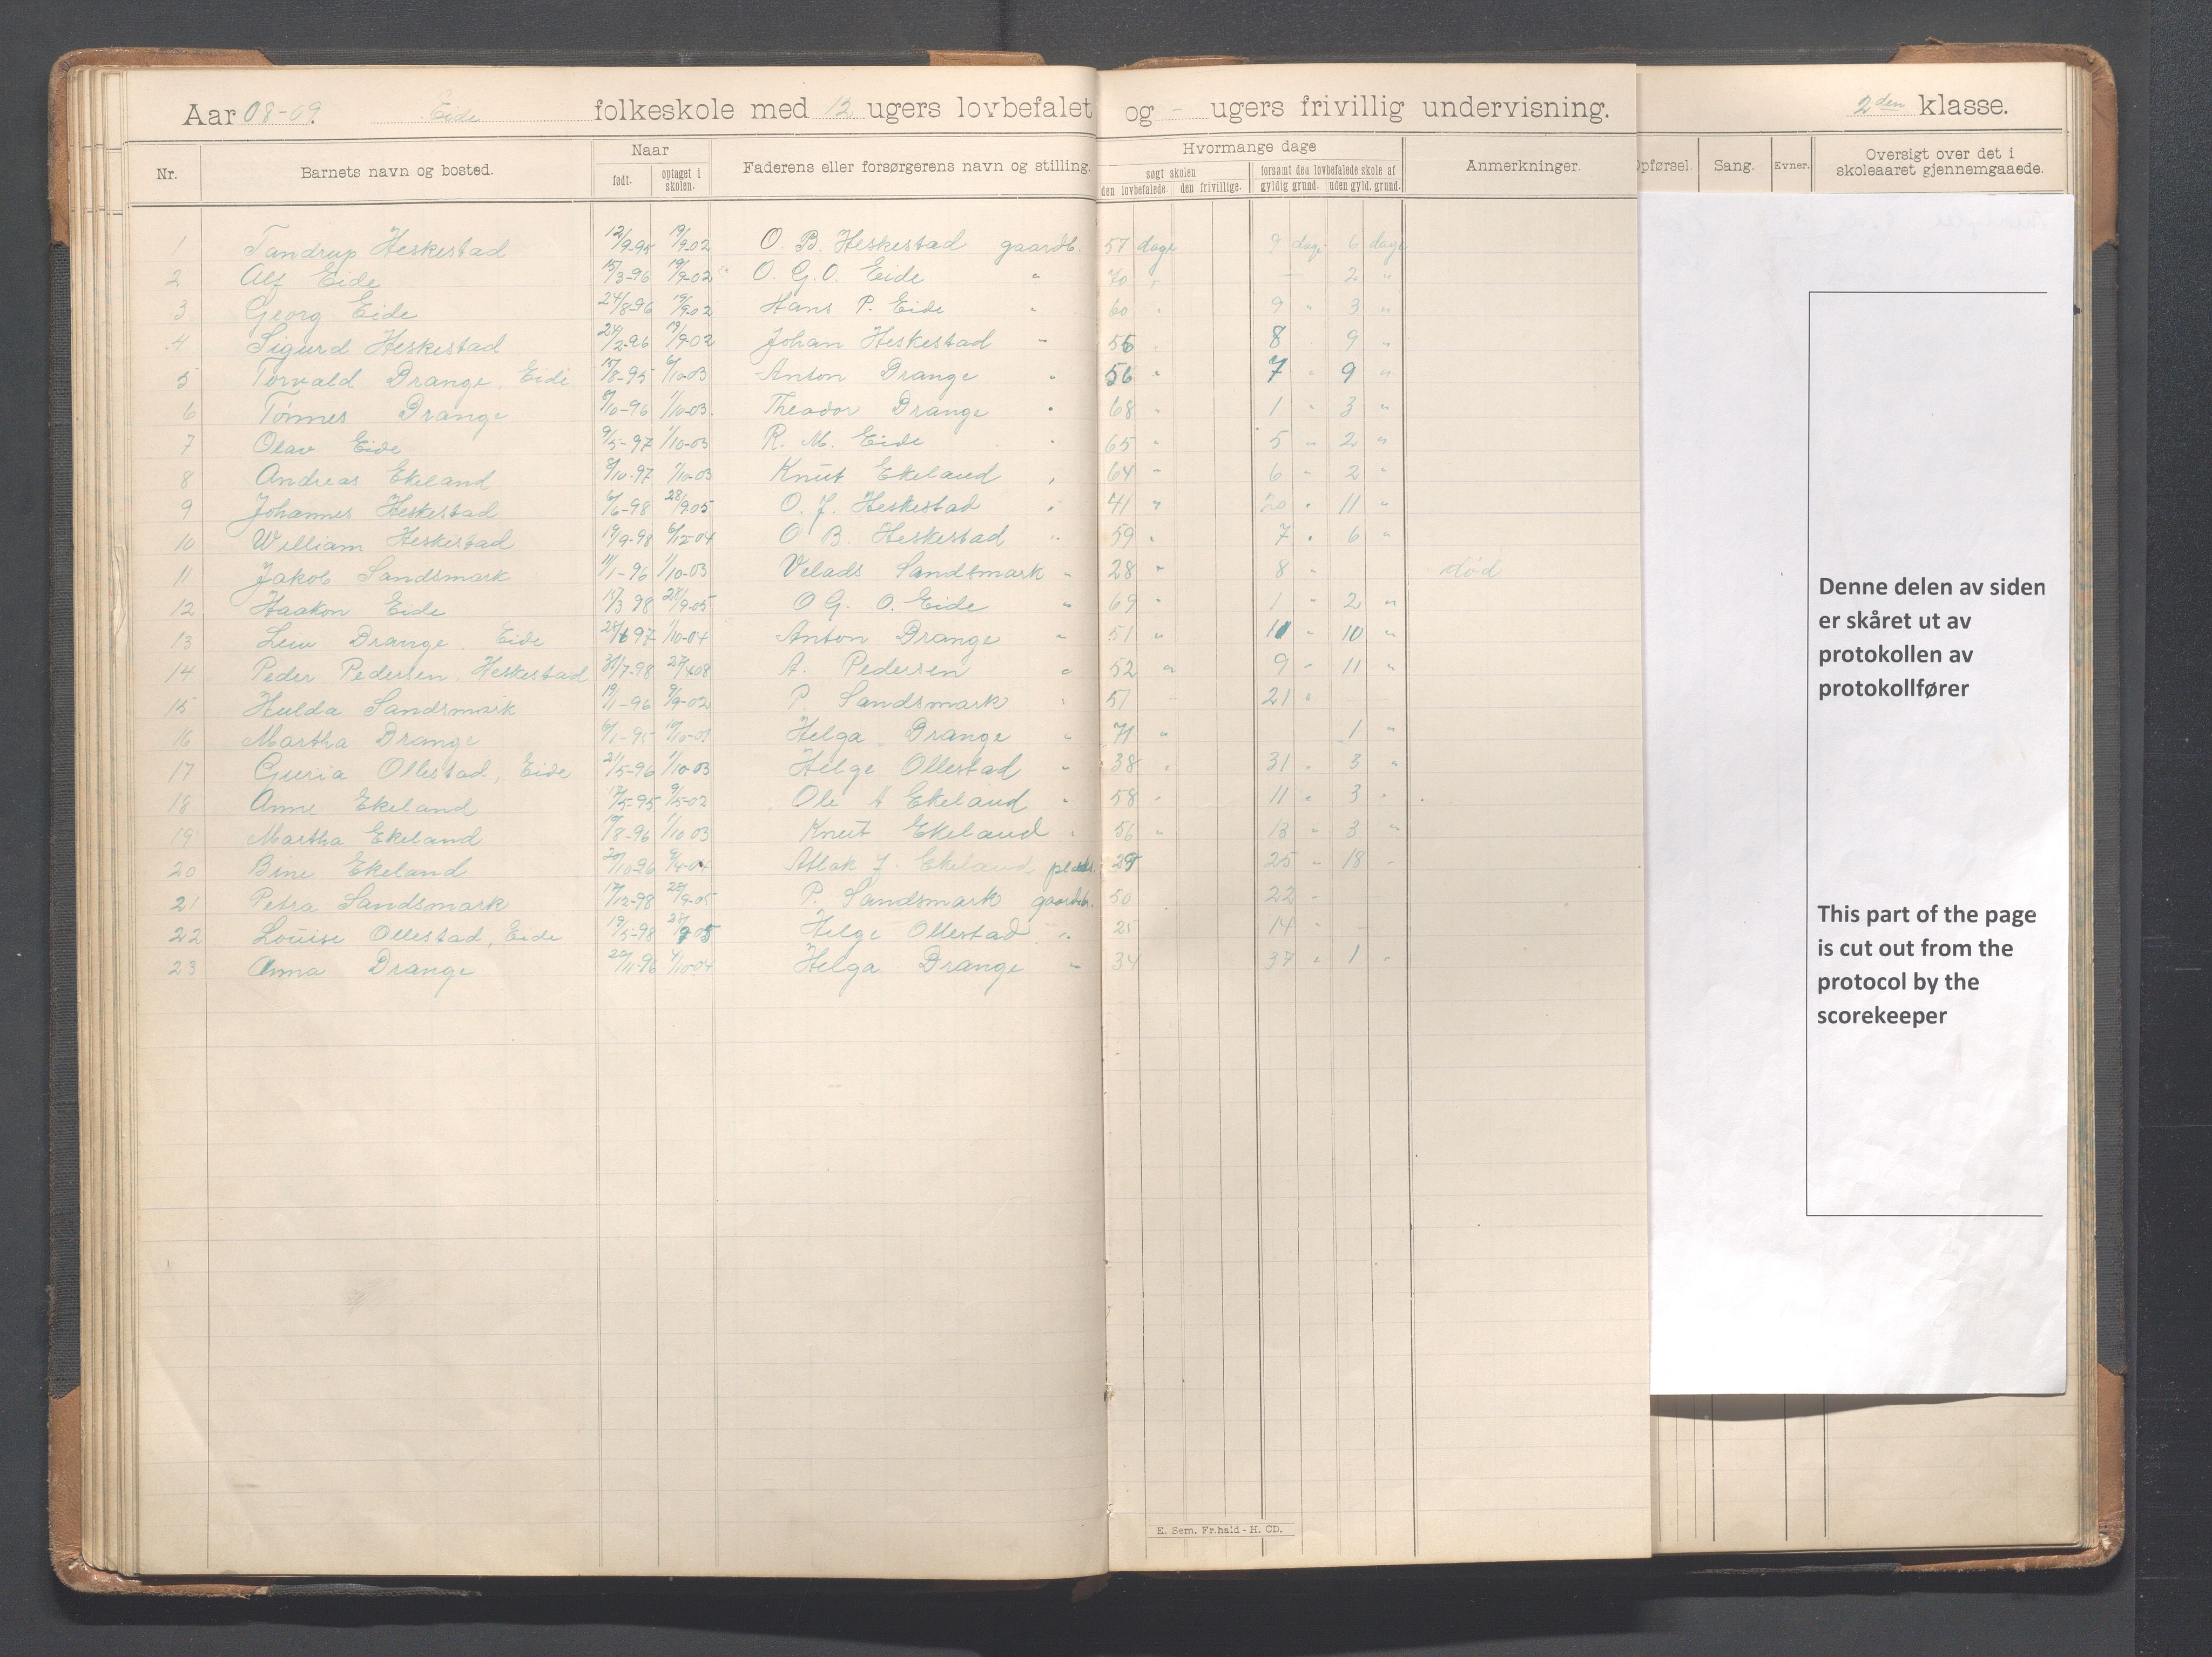 Aar 08-09. Eide folkeskole med 12 ugers lovbefalet og - ugers frivillig undervisning. 2den klasse.
Nr. Barnets navn og bosted. Naar født. optaget i skolen. Faderens eller forsørgerens navn og stilling. Hvormange dage søgt skolen den lovbefalede. den frivillige. forsømt den lovbefalede skole af gyldig grund. uden gyld. grund. Anmerkninger. Opførsel. Sang. Evner. Oversigt over det i skoleaaret gjennemgaaede.
1 Tandrup Heskestad 12/9-95 19/9-02 O. B. Heskestad gaardb. 57 dage 9 dage 6 dage
2 Alf Eide 15/3-96 19/9-02 O. G. O. Eide " 70 " - 2 "
3 Georg Eide 24/8-96 19/9-02 Hans P. Eide " 60 " 9 " 3 "
4 Sigurd Heskestad 24/2-96 19/9-02 Johan Heskestad " 56 " 8 9 "
5 Torvald Drange, Eide 15/8-95 6/10-03 Anton Drange " 56 " 7 " 9 "
6 Tønnes Drange 8/10-96 1/10-03. Theodor Drange " 68 " 1 " 3 "
7 Olav Eide 9/5-97 1/10-03 R. M. Eide " 65 " 5 " 2 "
8 Andreas Ekeland 8/10-97 1/10-03 Knut Ekeland " 64 " 6 " 2 "
9 Johannes Heskestad 6/6-98 28/9-05 O. J. Heskestad " 41 " 20 " 11 "
10 William Heskestad 19/9-98 6/12-04 O B. Heskestad " 59 " 7 " 6 "
11 Jakob Sandsmark 11/1-96 1/10-03 Velads Sandsmark " 28 " 8 " død
12 Haakon Eide 15/3 98 28/9-05 O G. O. Eide " 69 " 1 " 2 "
13 Leiv Drange. Eide 28/6 97 1/10-04 Anton Drange " 51 " 11 " 10 "
14 Peder Pedersen, Heskestad 31/7-98 27/4 08 A. Pedersen " 52 " 9 " 11 "
15 Hulda Sandsmark 19/1-96 9/9-02 P. Sandsmark " 51 - 21 "
16 Martha Drange 6/1-95 Helga Drange " 71 " 1 "
17 Guria Ollestad, Eide 21/5-96 1/10-03 Helge Ollestad " 38 " 31 " 3 "
18 Anne Ekeland 17/5-95 9/5-02 Ole A Ekeland " 58 " 11 " 3 "
19 Martha Ekeland 19/8-96 1/10 03 Knut Ekeland " 56 " 13 " 3 "
20 Bine Ekeland 20/10-96 9/4-04 Atlak J. Ekeland 29 25 " 18 "
21 Petra Sandsmark 17/12-98 28/9-05 P. Sandsmark gaardb. 50 22 "
22 Louise Ollestad, Eide 19/5-98 28/9 05 Helge Ollestad " 25 14 " -
23 Anna Drange 20/11-96 4/10-04 Helga Drange " 34 37 " 1 "
Denne delen av siden
er skåret ut av
protokollen av
protokollfører
This part of the page
is cut out from the
protocol by the
scorekeeper
E. Sem, Fr.hald - H. CD.